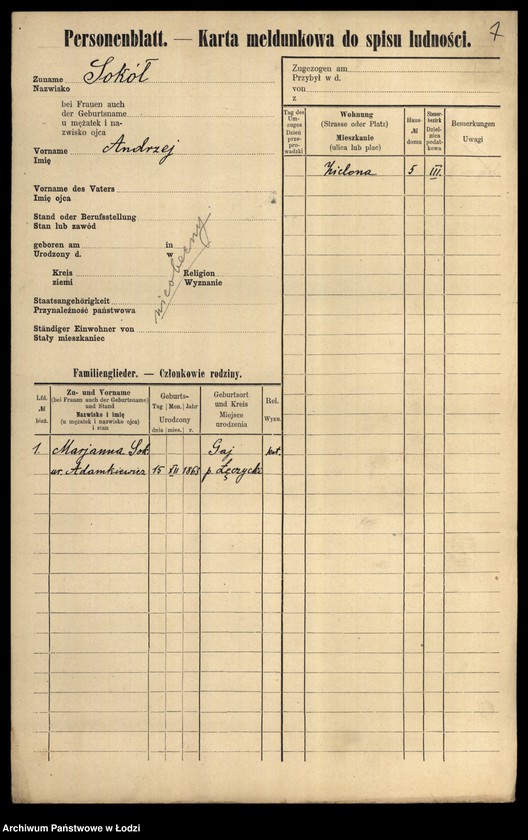 7
Personenblatt. — Karta meldunkowa do spisu ludności.
Zuname Sokół
Nazwisko
bei Frauen auch
der Geburtsname
u mężatek i na-
zwisko ojca
Vorname Andrzej
Imię
Vorname des Vaters
Imię ojca
Stand oder Berufsstellung
Stan lub zawód
geboren am in
Urodzony d. w
Kreis Religion
ziemi Wyznanie
nieobecny
Staatsangehörigkeit
Przynależność państwowa
Ständiger Einwohner von
Stały mieszkaniec
Familienglieder. — Członkowie rodziny.
Lfd. № bież.
Zu- und Vorname
(bei Frauen auch der Geburtsname)
und Stand
Nazwisko i imię
(u mężatek i nazwisko ojca)
i stan
Geburts-
Tag Mon. Jahr
Urodzony
dnia mies. r.
Geburtsort
und Kreis
Miejsce
urodzenia
Rel.
Wyzn.
1 Marjanna Sok. Gaj kat.
ur. Adamkiewicz 15 XII 1863 p. Łęczycki
Zugezogen am
Przybył w d.
von
z
Tag des
Um-
zuges
Dzień
prze-
prowadzki
Wohnung
(Strasse oder Platz)
Mieszkanie
(ulica lub plac)
Haus-
№
domu
Steuer-
bezirk
Dziel-
nica
podat-
kowa
Bemerkungen
Uwagi
Zielona 5 III.
Archiwum Państwowe w Łodzi